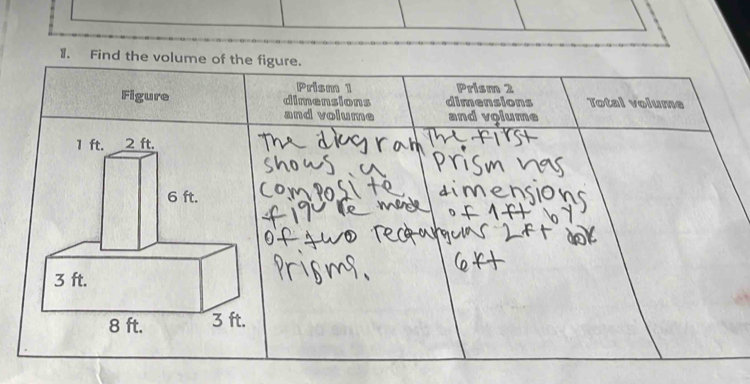 1. Find the volume of the figure.
Figure
Prism 1
dimensions
and volume
Prism 2
dimensions
and volume
Total volume
1 ft. 2 ft.
6 ft.
3 ft.
8 ft.
3 ft.
The diagram
shows a
composite
figure made
of two rectangular
Prisms.
The first
Prism has
dimensions
of 1ft by
2ft
6ft